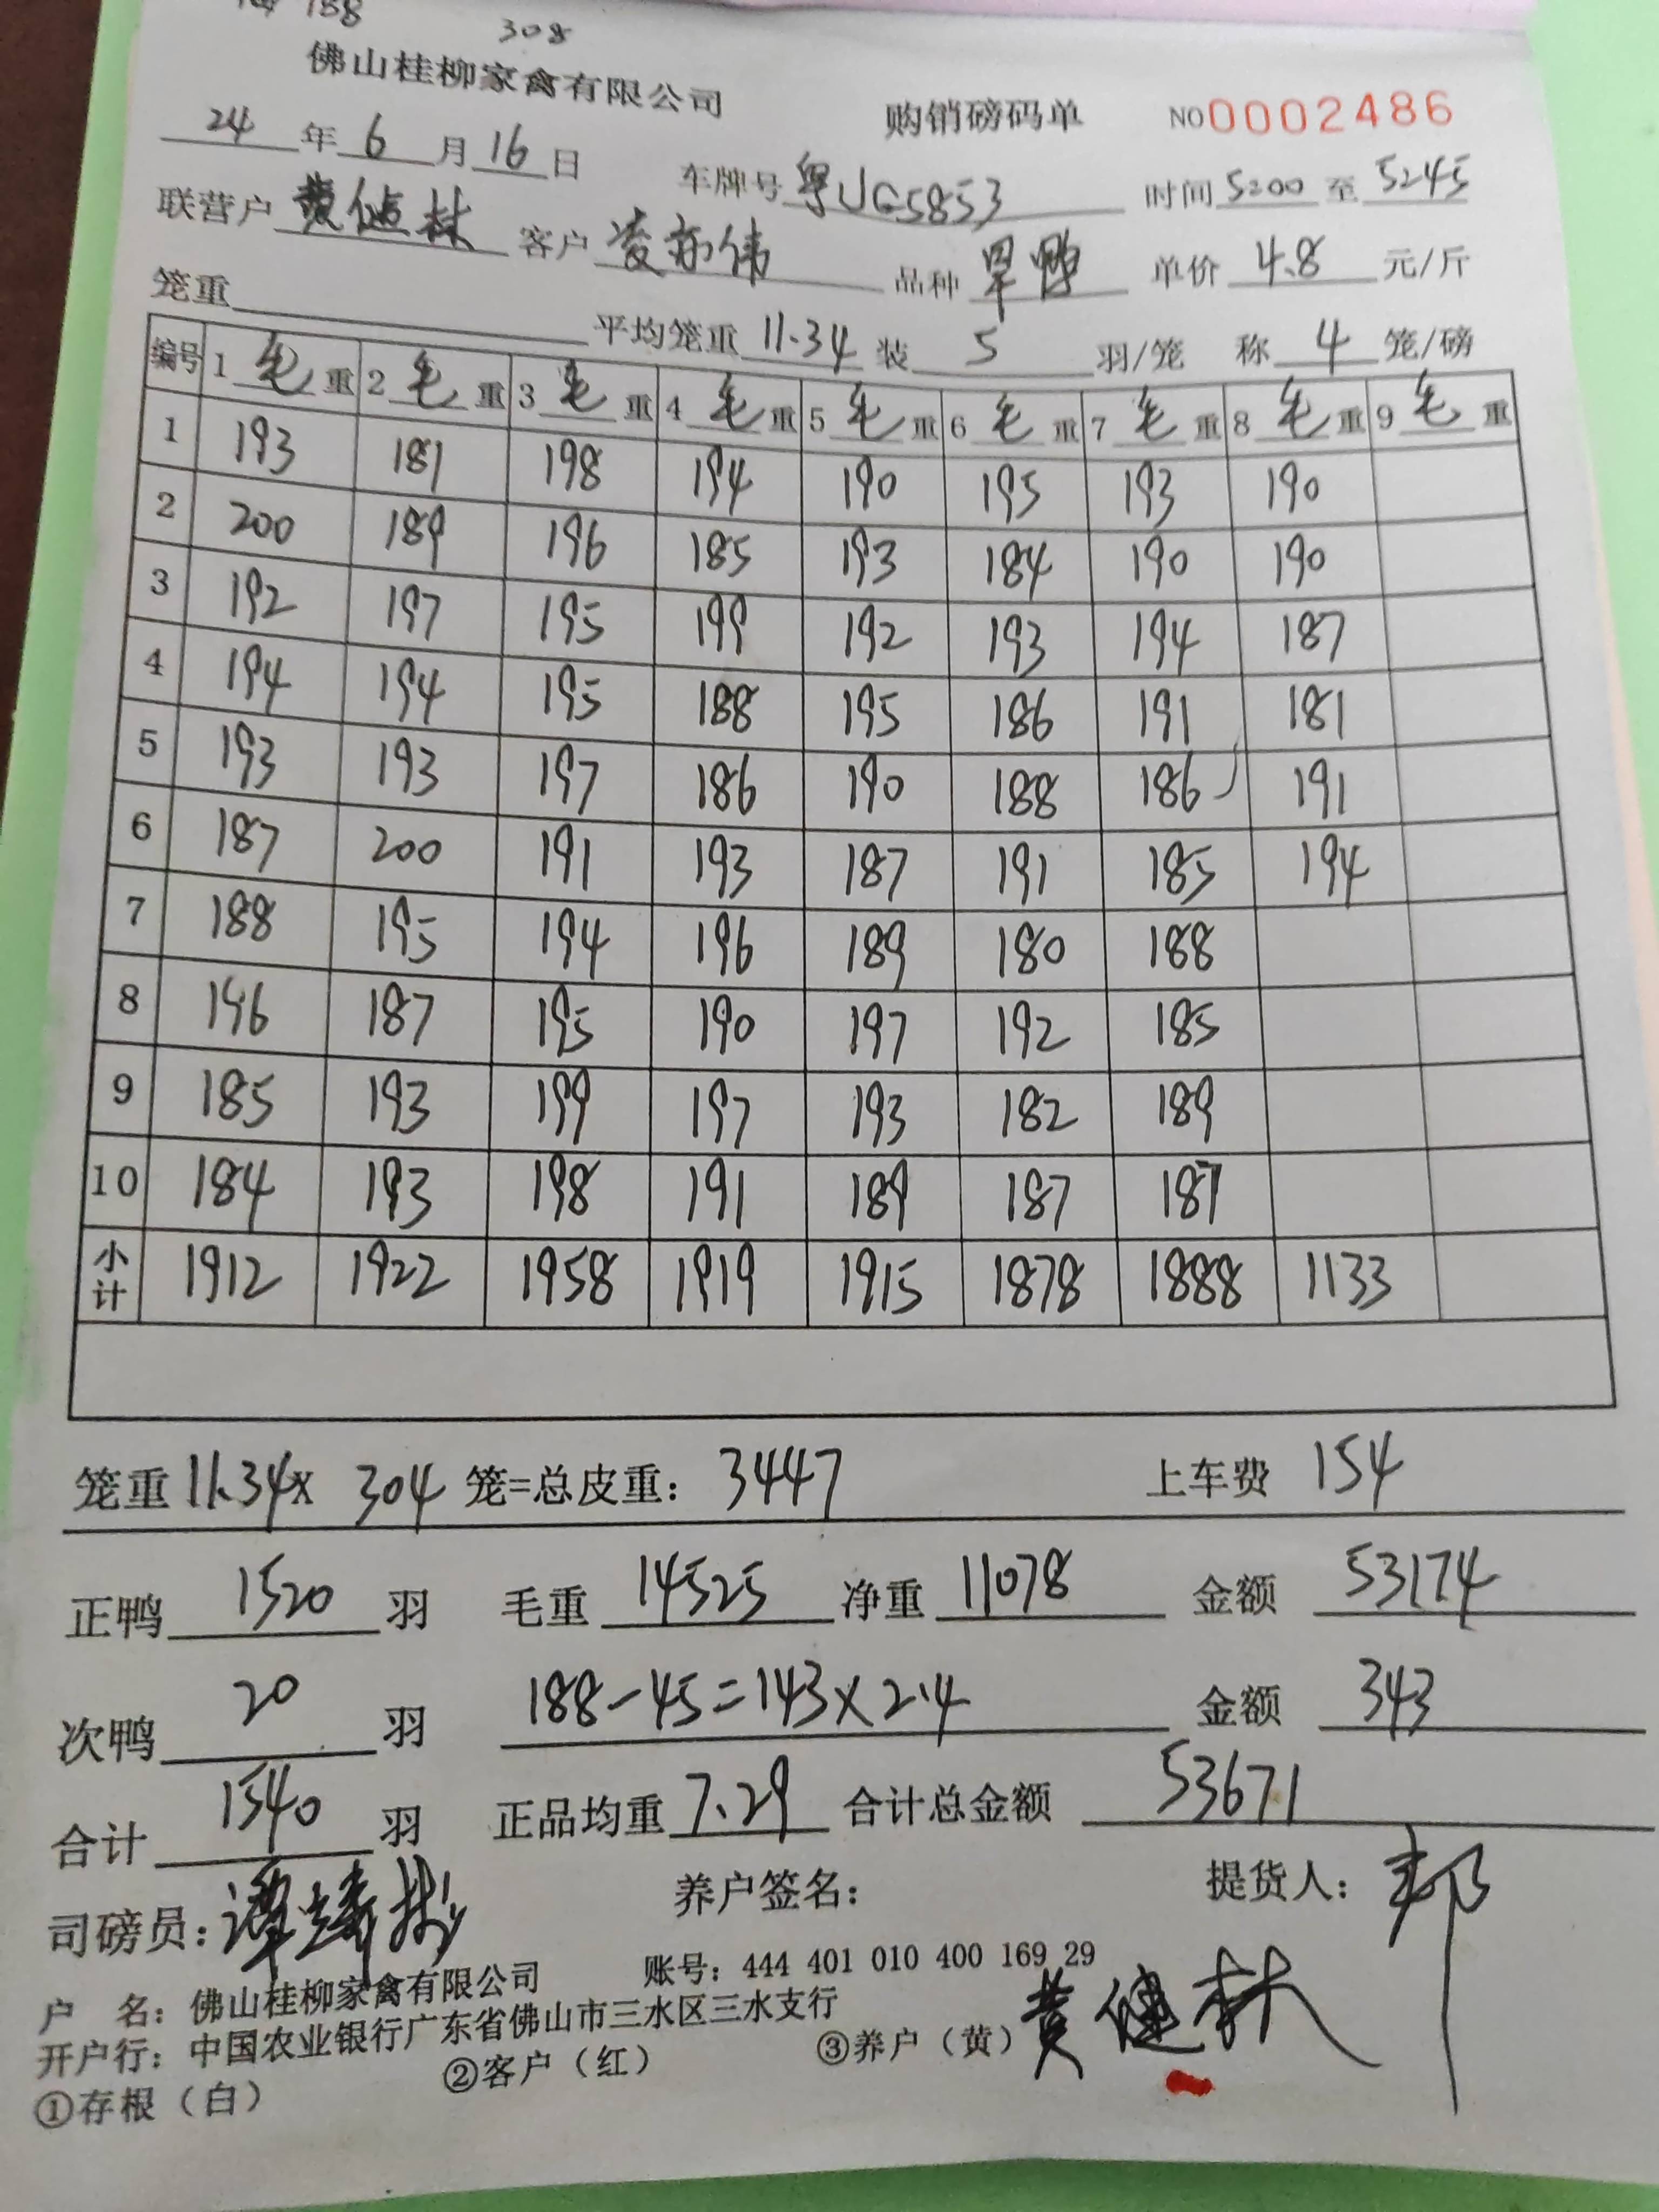 188
308
佛山桂柳家禽有限公司 购销磅码单 NO0002486
24年6月16日 车牌号粤UG5853 时间5:00至5:45
联营户黄健林 客户凌亦伟 品种旱鸭 单价4.8元/斤
笼重 平均笼重11.34装5羽/笼 称4笼/磅
编号 1毛重 2毛重 3毛重 4毛重 5毛重 6毛重 7毛重 8毛重 9毛重
1 193 181 198 194 190 195 193 190
2 200 189 196 185 193 184 190 190
3 192 197 195 199 192 193 194 187
4 194 194 195 188 195 186 191 181
5 193 193 197 186 190 188 186 191
6 187 200 191 193 187 191 185 194
7 188 195 194 196 189 180 188
8 196 187 195 190 197 192 185
9 185 193 199 197 193 182 189
10 184 193 198 191 189 187 187
小计 1912 1922 1958 1919 1915 1878 1888 1133
笼重11.34× 304笼=总皮重:3447 上车费 154
正鸭1520羽 毛重14525净重11078 金额53174
次鸭20羽 188-45=143×2.4 金额343
合计1540羽 正品均重7.29 合计总金额53671
司磅员: 养户签名: 提货人:邦
黄健林
户 名:佛山桂柳家禽有限公司 账号:444 401 010 400 169 29
开户行:中国农业银行广东省佛山市三水区三水支行
①存根(白) ②客户(红) ③养户(黄)